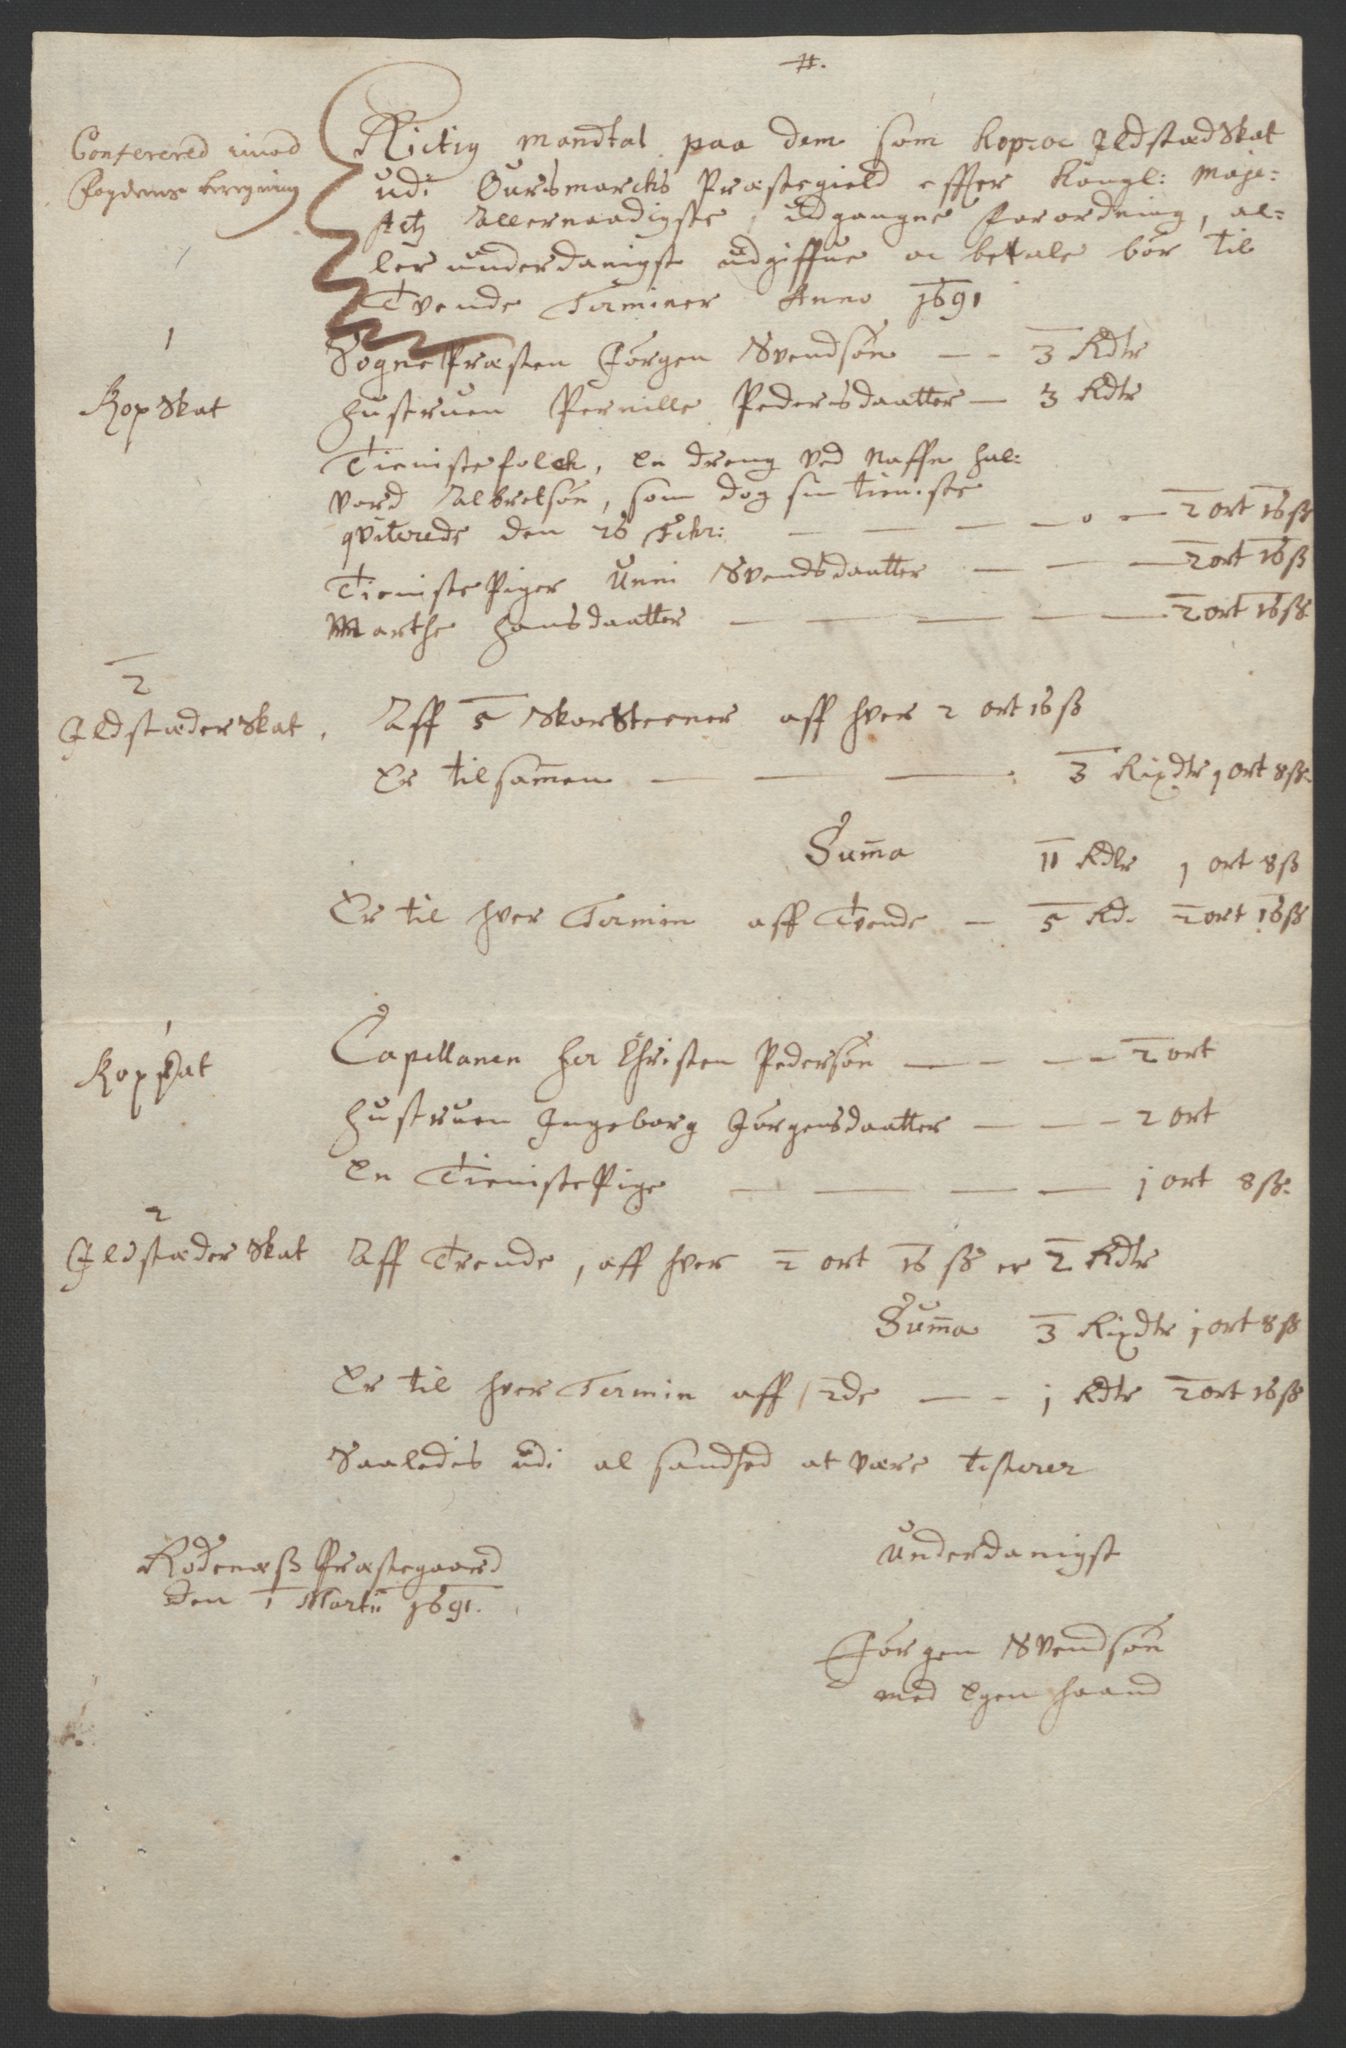 #.
Conferered imod
Fogdens Beregning
Rictig Mandtal paa dem som Kop oc Ildstæd Skat
udi Oursmarchs Præstegield effter Kongl: Maje-
stetz Allernaadigste udgangne Forordning, al-
ler underdanigst udgiffue oc betale bør til
Tvende Terminer Anno 1691
1
Kop Skat
Sogne Præsten Jørgen Svendsøn — - 3 Rdlr
Hustruen Pernille Pedersdaatter — 3 Rdlr
Tieniste folch, En dreng ved Naffn Hal-
vord Albretsøn, som dog sin tieniste
qviterede den 26 Febr: — — — — 2 ort 16 ß
Tieniste Piger Unni Svendsdaatter — — — 2 ort 16 ß
Marthe Hansdaatter — — — — — 2 ort 16 ß
2
Ildstæder Skat,
Aff 5 Skorsteener aff hver 2 ort 16 ß
Er tilsamen — — — 3 Rixdlr 1 ort 8 ß
Suma 11 Rdlr 1 ort 8 ß
Er til hver Termin aff Tvende — 5 Rd. 2 ort 16 ß
1
Kopskat
Capellanen Her Christen Pedersøn — — — - 2 ort
Hustruen Ingeborg Jørgensdaatter — — - 2 ort
En Tieniste Pige — — — — 1 ort 8 ß
2
Ildstæder Skat
Aff Trende, aff hver 2 ort 16 ß er 2 Rdlr
Suma 3 Rixdlr 1 ort 8 ß
Er til hver Termin aff 2de — - 1 Rdlr 2 ort 16 ß
Saaledis udi al sandhed at være testerer
Rødenæß Præstegaard
den 1 Martii 1691.
Underdanigst
Jørgen Svendsøn
med Egen haand